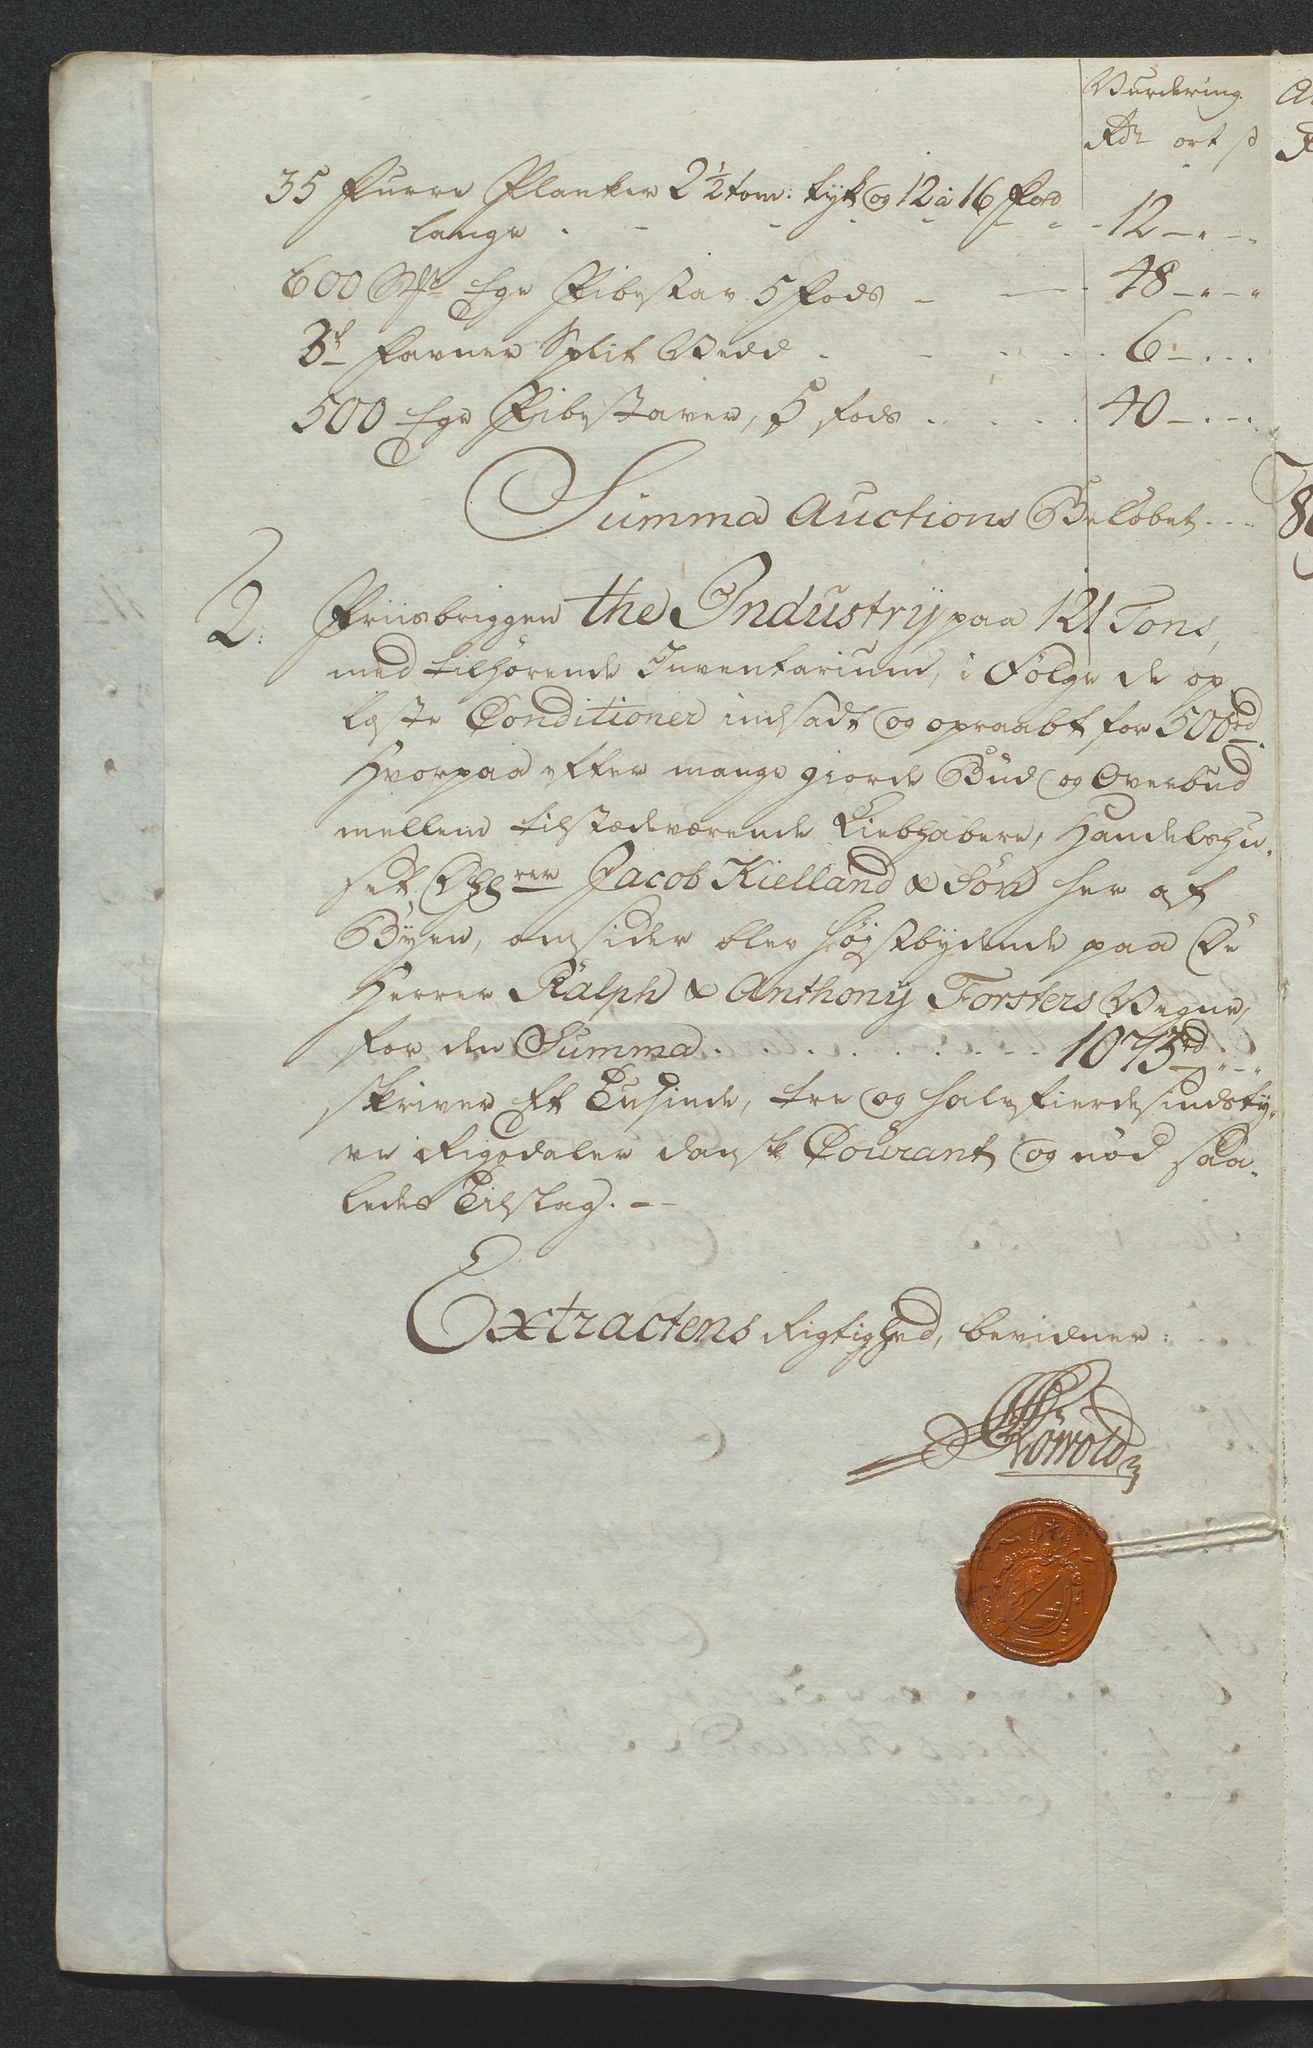 Vurdering.
Rdr ort s
35 Furre Planker 2 1/2 tom: tyk og 12 à 16 Fod
lange 12
600 St. Ege Pibestav 5 Fods 48
3 Favner Split Vedd 6
500 Ege Pibestaver, 5 fods 40
Summa Auctions Beløbet
2. Priisbriggen the Industrÿ paa 121 Tons,
med tilhørende Inventarium, i Følge de op
læste Conditioner indsadt og opraabt for 500rd
Hvorpaa efter mange giorde Bud og Overbud
mellem tilstædeværende Liebhabere, Handelshu-
set Hrrer Jacob Kielland & Søn her af
Byen, omsider blev høystbydende paa De
Herrer Ralph & Anthonÿ Forsters Vegne,
for den Summa 1073rd
skriver Et Tusinde, tre og halvfierdesindsty-
ve Rigsdaler dansk Courant og nød saa-
ledes Tilslag.
Extractens Rigtighed, bevidner: